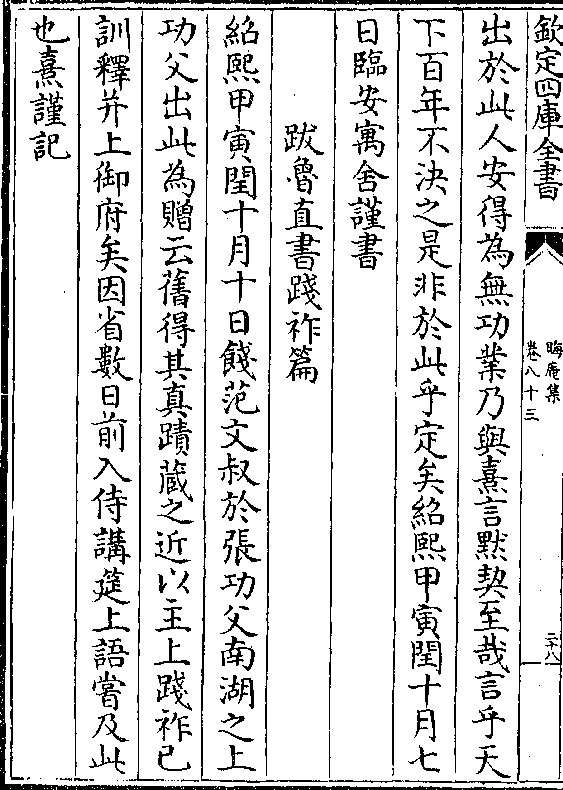 欽定四庫全書
晦庵集
卷八十三
二十八
出於此人安得為無功業乃與熹言默契至哉言乎天
下百年不決之是非於此乎定矣紹熙甲寅閏十月七
日臨安寓舍謹書
跋魯直書踐祚篇
紹熙甲寅閏十月十日餞范文叔於張功父南湖之上
功父出此為贈云舊得其真蹟藏之近以主上踐祚已
訓釋并上御府矣因省數日前入侍講筵上語嘗及此
也熹謹記